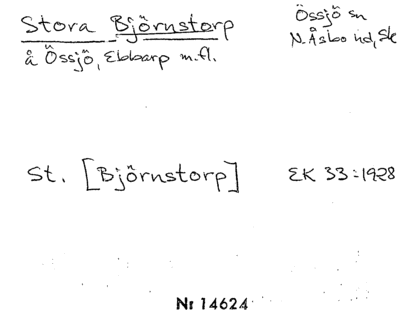 Stora Björnstorp
å Össjö, Ebbarp m.fl.
Össjö sn
N. Åsbo hd, Sk
St. [Björnstorp]
EK 33:1928
Nr 14624